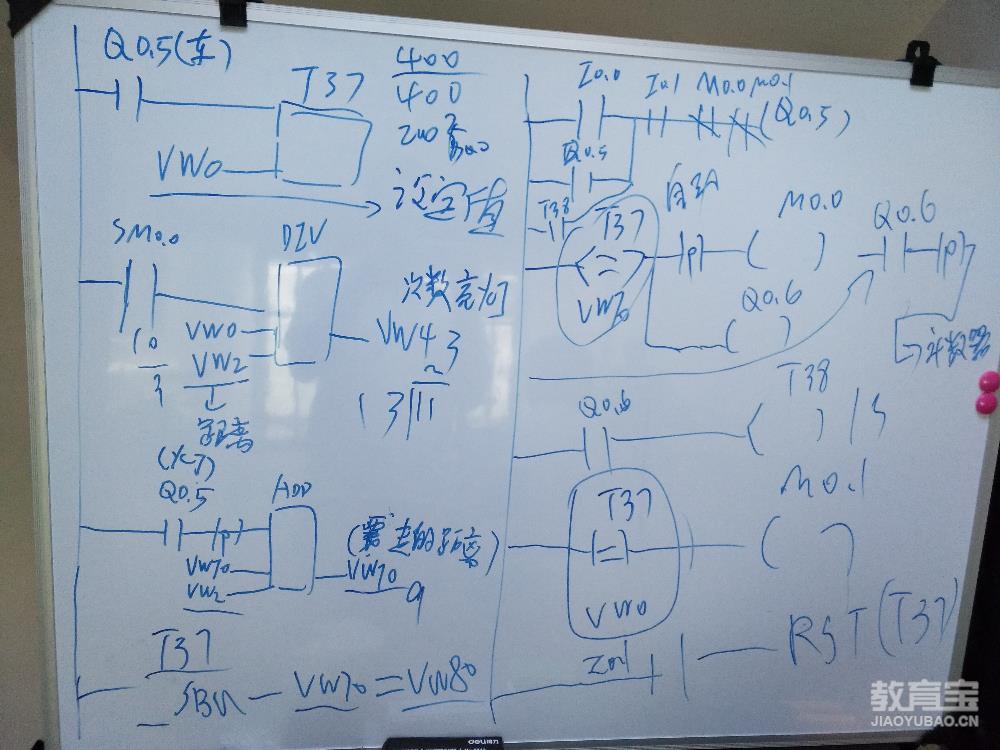 Q0.5(车)
T37
400
400
200
VW0
设定值
SM0.0
DIV
次数亮灯
VW0
VW2
VW4 3
10
3
13/11
距离
Q0.5
ADD
P
(需走的距离)
VW70
VW2
VW70
9
T37
SBN
VW70=VW80
I0.0
I0.1
M0.0
M0.1
(Q0.5)
Q0.5
T38
T37
=
VW70
P
M0.0
( )
Q0.6
( )
Q0.6
P
计数器
Q0.6
T38
( )
T37
=
VW0
M0.1
( )
RST(T37)
deli
教育宝
JIAOYUBAO.CN